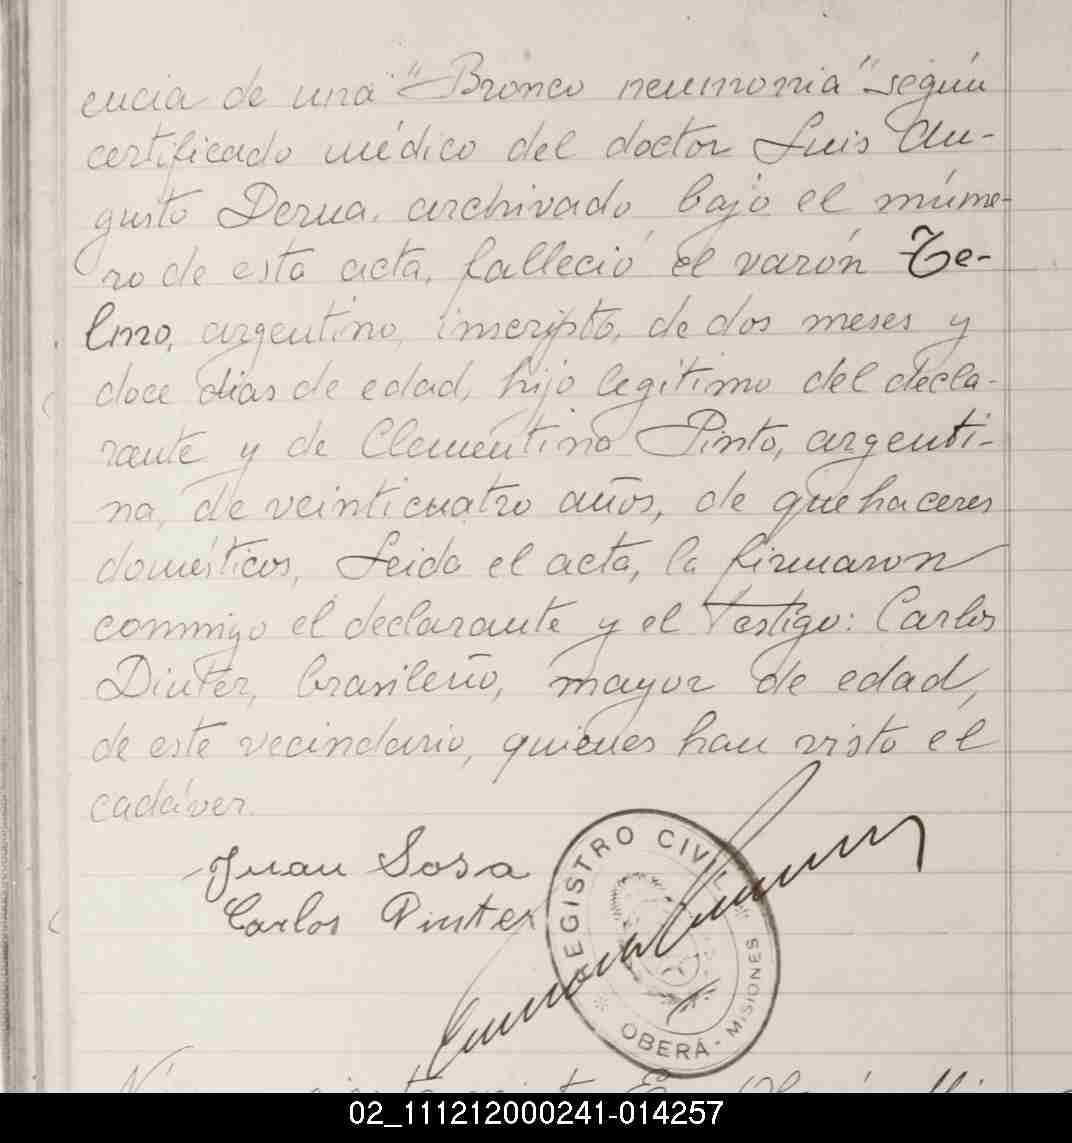 encia de una "Bronco neumonia" según
certificado médico del doctor Luis Au-
gusto Derua, archivado bajo el núme-
ro de esta acta, falleció el varón Te-
lmo, argentino, inscripto, de dos meses y
doce dias de edad, hijo legítimo del decla-
rante y de Clementina Pinto, argenti-
na, de veinticuatro años, de quehaceres
domésticos, Leida el acta, la firmaron
conmigo el declarante y el testigo: Carlos
Dinter, brasileño, mayor de edad,
de este vecindario, quienes han visto el
cadáver.
Juan Sosa
Carlos Dinter
REGISTRO CIVIL
OBERÁ - MISIONES
02_111212000241-014257